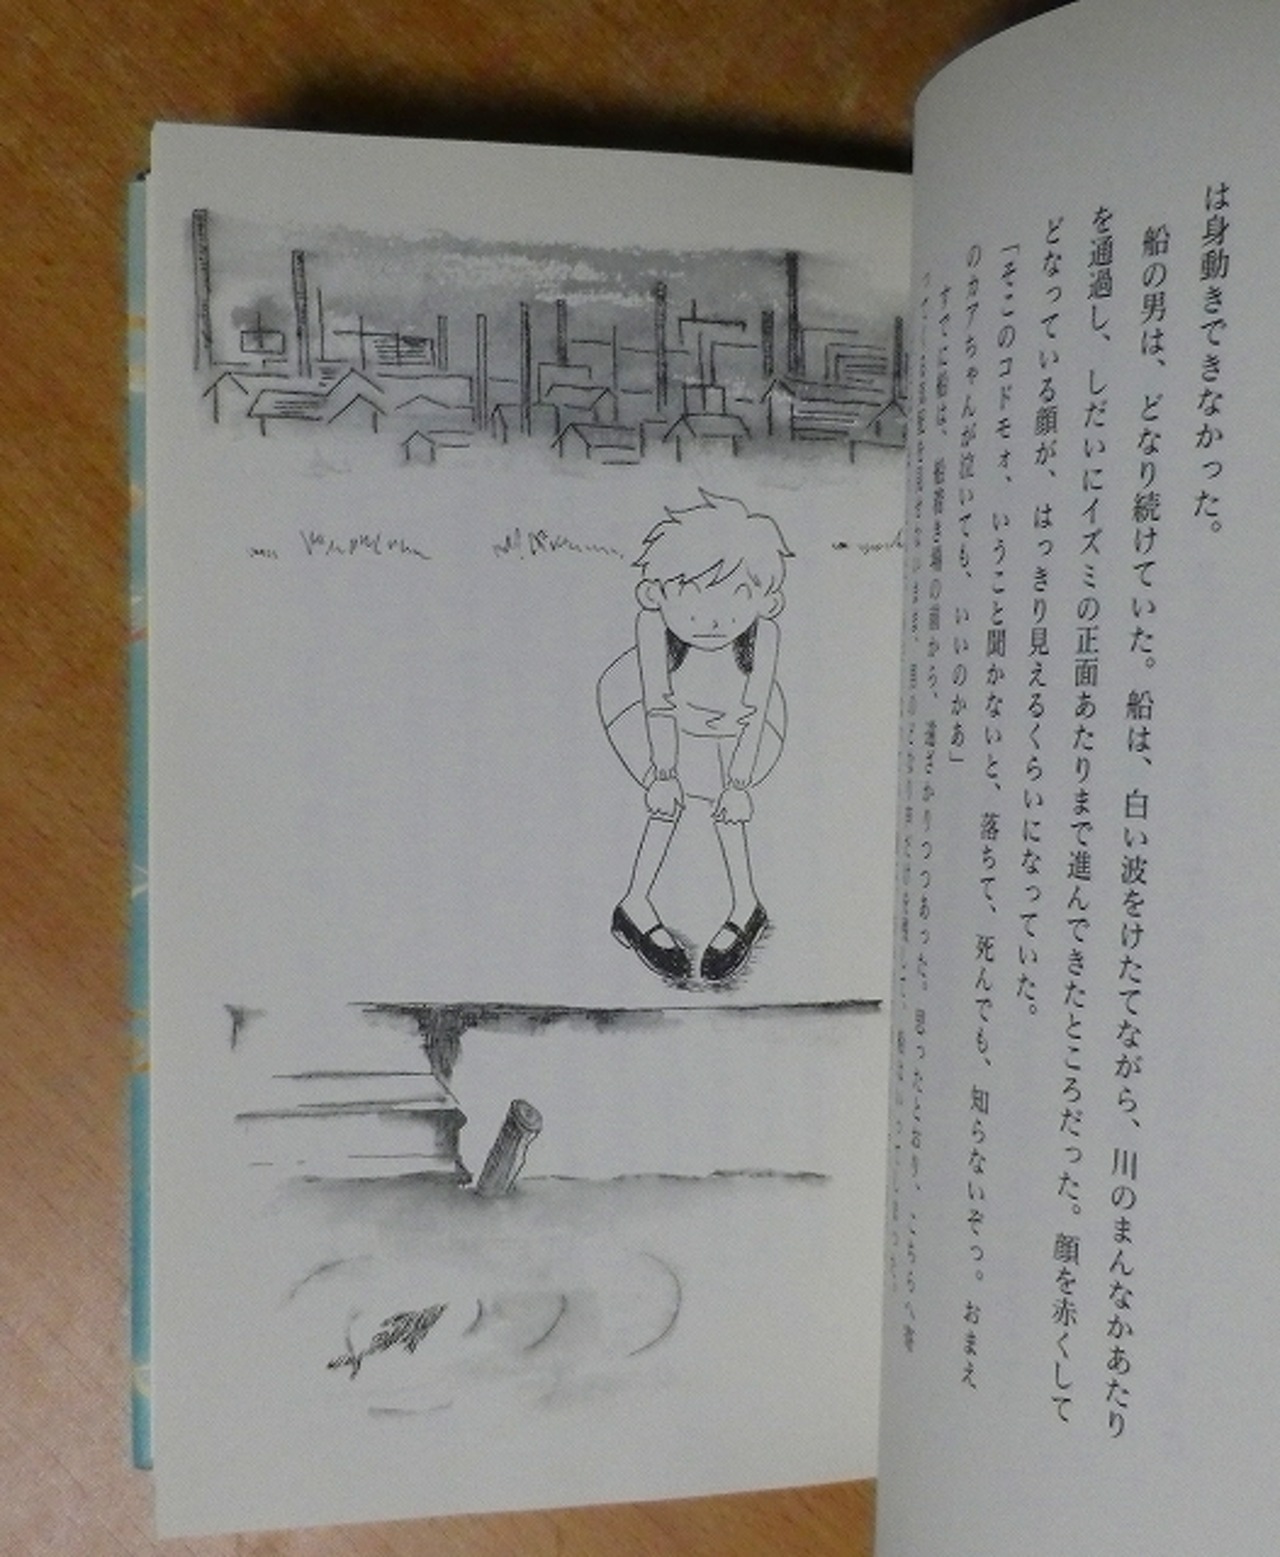 は身動きできなかった。
船の男は、どなり続けていた。船は、白い波をけたてながら、川のまんなかあたり
を通過し、しだいにイズミの正面あたりまで進んできたところだった。顔を赤くして
どなっている顔が、はっきり見えるくらいになっていた。
「そこのコドモォ、いうこと聞かないと、落ちて、死んでも、知らないぞっ。おまえ
のカアちゃんが泣いても、いいのかあ」
すでに船は、船着き場の前から、遠ざかりつつあった。